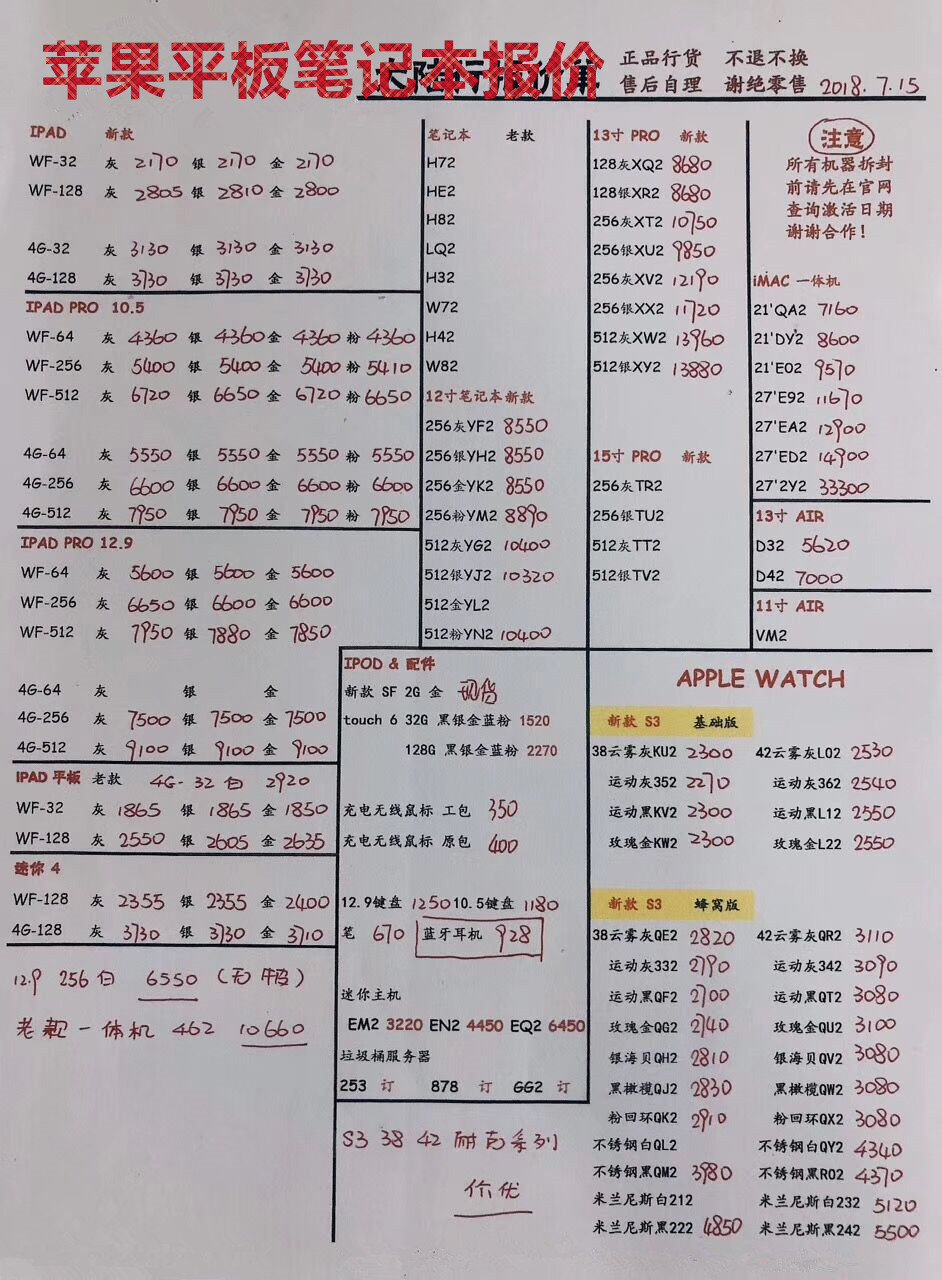 苹果平板笔记本报价
正品行货 不退不换
售后自理 谢绝零售 2018.7.15
IPAD 新款
WF-32 灰 2170 银 2170 金 2170
WF-128 灰 2805 银 2810 金 2800
4G-32 灰 3130 银 3130 金 3130
4G-128 灰 3730 银 3730 金 3730
IPAD PRO 10.5
WF-64 灰 4360 银 4360 金 4360 粉 4360
WF-256 灰 5400 银 5400 金 5400 粉 5410
WF-512 灰 6720 银 6650 金 6720 粉 6650
4G-64 灰 5550 银 5550 金 5550 粉 5550
4G-256 灰 6600 银 6600 金 6600 粉 6600
4G-512 灰 7950 银 7950 金 7950 粉 7950
IPAD PRO 12.9
WF-64 灰 5600 银 5600 金 5600
WF-256 灰 6650 银 6600 金 6600
WF-512 灰 7950 银 7880 金 7850
4G-64 灰 银 金
4G-256 灰 7500 银 7500 金 7500
4G-512 灰 9100 银 9100 金 9100
IPAD 平板 老款 4G-32 白 2920
WF-32 灰 1865 银 1865 金 1850
WF-128 灰 2550 银 2605 金 2635
迷你 4
WF-128 灰 2355 银 2355 金 2400
4G-128 灰 3730 银 3730 金 3710
12.9 256 白 6550
老款一体机 462 10660
笔记本 老款
H72
HE2
H82
LQ2
H32
W72
H42
W82
12寸笔记本新款
256灰YF2 8550
256银YH2 8550
256金YK2 8550
256粉YM2 8890
512灰YG2 10400
512银YJ2 10320
512金YL2
512粉YN2 10400
13寸 PRO 新款
128灰XQ2 8680
128银XR2 8680
256灰XT2 10750
256银XU2 9850
256灰XV2 12190
256银XX2 11720
512灰XW2 13960
512银XY2 13880
15寸 PRO 新款
256灰TR2
256银TU2
512灰TT2
512银TV2
注意
所有机器拆封
前请先在官网
查询激活日期
谢谢合作!
iMAC 一体机
21'QA2 7160
21'DY2 8600
21'E02 9570
27'E92 11670
27'EA2 12900
27'ED2 14900
27'2Y2 33300
13寸 AIR
D32 5620
D42 7000
11寸 AIR
VM2
IPOD & 配件
新款 SF 2G 金 现货
touch 6 32G 黑银金蓝粉 1520
128G 黑银金蓝粉 2270
充电无线鼠标 工包 350
充电无线鼠标 原包 400
12.9键盘 1250 10.5键盘 1180
笔 670 蓝牙耳机 928
迷你主机
EM2 3220 EN2 4450 EQ2 6450
垃圾桶服务器
253 订 878 订 GG2 订
S3 38 42 耐克系列
价优
APPLE WATCH
新款 S3 基础版
38云雾灰KU2 2300 42云雾灰L02 2530
运动灰352 2270 运动灰362 2540
运动黑KV2 2300 运动黑L12 2550
玫瑰金KW2 2300 玫瑰金L22 2550
新款 S3 蜂窝版
38云雾灰QE2 2820 42云雾灰QR2 3110
运动灰332 2790 运动灰342 3090
运动黑QF2 2700 运动黑QT2 3080
玫瑰金QG2 2740 玫瑰金QU2 3100
银海贝QH2 2810 银海贝QV2 3080
黑橄榄QJ2 2830 黑橄榄QW2 3080
粉回环QK2 2910 粉回环QX2 3080
不锈钢白QL2 不锈钢白QY2 4340
不锈钢黑QM2 3980 不锈钢黑R02 4370
米兰尼斯白212 米兰尼斯白232 5120
米兰尼斯黑222 4850 米兰尼斯黑242 5500